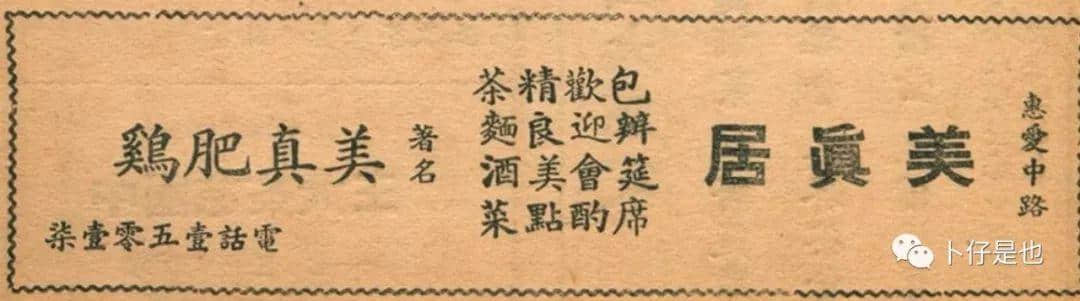 惠愛中路
美眞居
包辦筵席
歡迎會酌
精良美點
茶麵酒菜
著名
美真肥鷄
電話壹五零壹柒
卜仔是也